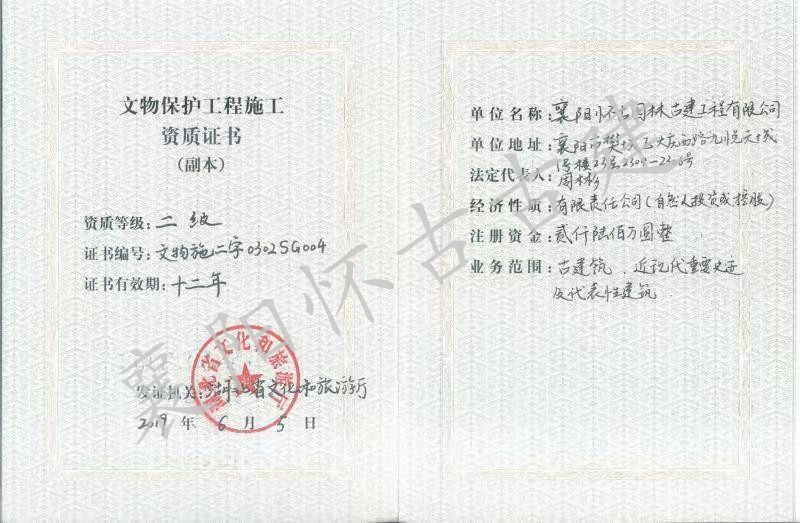 文物保护工程施工
资质证书
(副本)
资质等级:二级
证书编号:文物施二字0302SG004
证书有效期:十二年
湖北省文化和旅游厅
发证机关:湖北省文化和旅游厅
2019 年 6 月 5 日
单位名称:襄阳怀古园林古建工程有限公司
单位地址:襄阳市樊城区大庆西路九悦天城
号楼23层2304-23-6号
法定代表人:周彬
经济性质:有限责任公司(自然人投资或控股)
注册资金:贰仟陆佰万圆整
业务范围:古建筑、近现代重要史迹
及代表性建筑
襄阳怀古古建